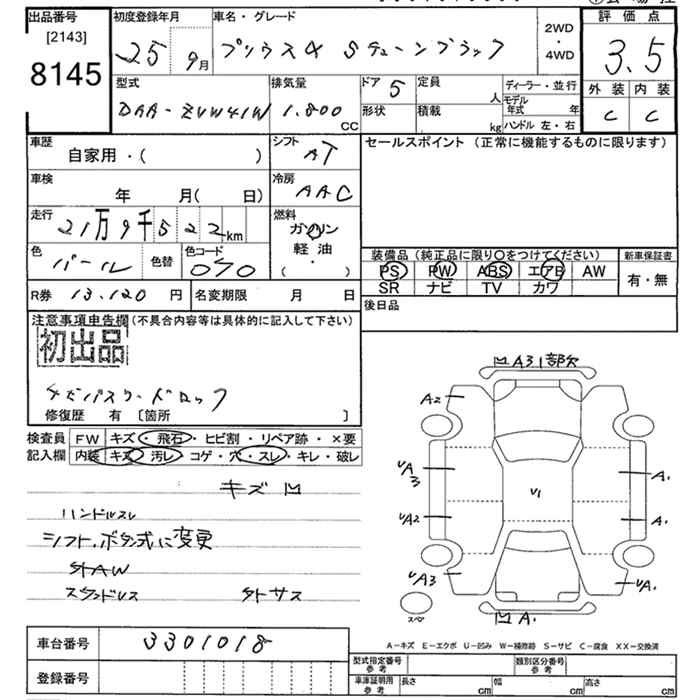 出品番号 初度登録年月 車名・グレード 評価点
[2143]
8145
25 9月 プリウスα Sチューンブラック 2WD・4WD 3.5
外装 内装
C C
型式 排気量 ドア 5 定員 人 ディーラー・並行
DAA-ZVW41W 1.800 CC 形状 積載 kg モデル年式 年
ハンドル 左・右
車歴 シフト セールスポイント (正常に機能するものに限ります)
自家用・( ) AT
車検 冷房
年 月( 日) AAC
走行 燃料
21万9千522km ガソリン
軽油
( ・ )
色 パール 色替 色コード 070
装備品 (純正品に限り○をつけてください) 新車保証書
PS PW ABS エアB AW 有・無
SR ナビ TV カワ
R券 13.120 円 名変期限 月 日 後日品
注意事項申告欄 (不具合内容等は具体的に記入して下さい)
初出品
ナビパスワードロック
修復歴 有 〔箇所 〕
検査員 FW キズ・飛石・ヒビ割・リペア跡・×要
記入欄 内装 キズ・汚レ・コゲ・穴・スレ・キレ・破レ
キズ凹
ハンドルスレ
シフト.ボタン式に変更
外AW
スタンドレス 外サス
A31部欠
A2
A3
A.
V1
A2
A.
A3
A.
スペア
凹A.
A-キズ E-エクボ U-凹み W-補修跡 S-サビ C-腐食 XX-交換済
車台番号 3301018
登録番号
型式指定番号 参考 類別区分番号 参考
車庫証明用 参考 長さ cm 幅 cm 高さ cm